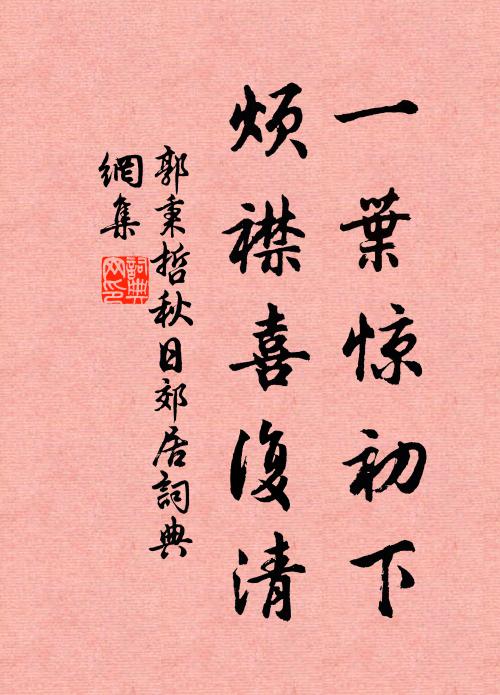 一葉惊初下
煩襟喜復清
郭秉哲秋日郊居詞典
網集
詞典
网印